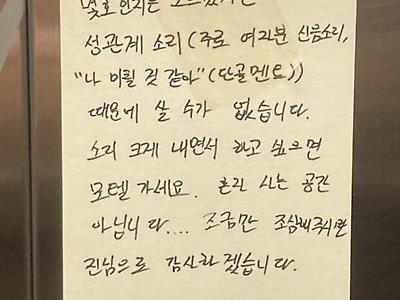 몇호 인지는 모르겠지만
성관계 소리 (주로 여자분 신음소리,
"나 미칠 것 같아" (단골멘트))
때문에 살 수가 없습니다.
소리 크게 내면서 하고 싶으면
모텔 가세요. 혼자 사는 공간
아닙니다.... 조금만 조심해주시면
진심으로 감사하겠습니다.